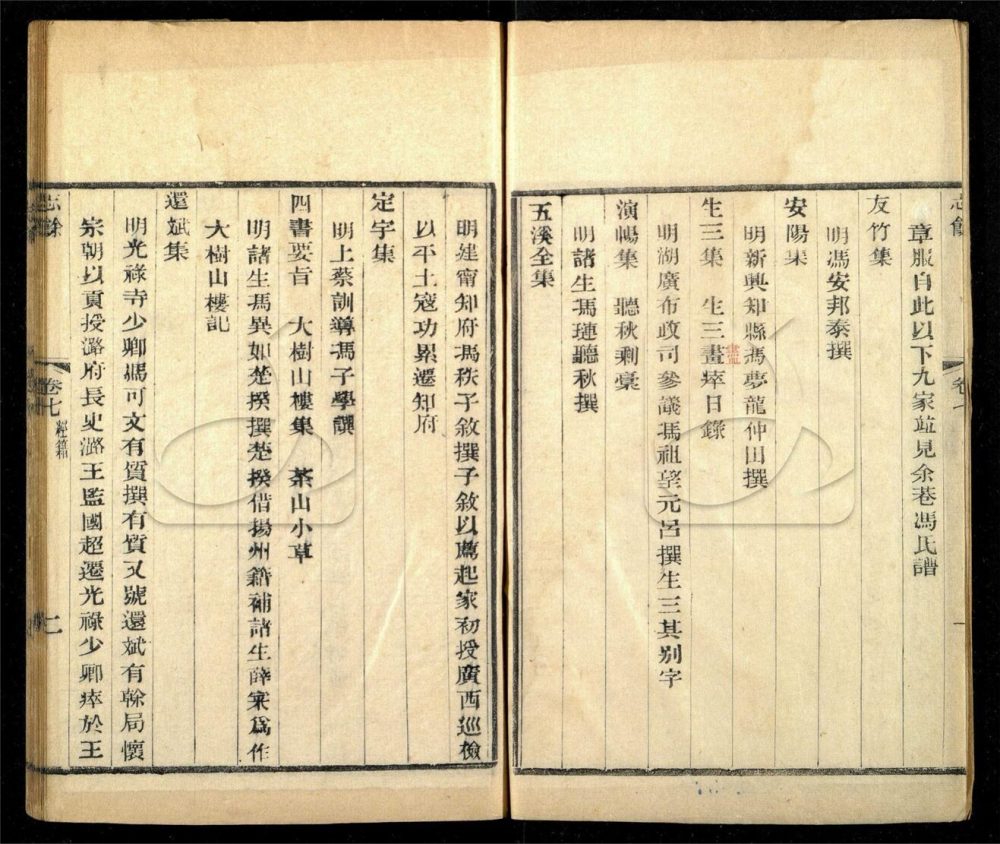 志餘
卷七
一
章服自此以下九家竝見余巷馮氏譜
友竹集
明馮安邦泰撰
安陽集
明新興知縣馮夢龍仲田撰
生三集　生三畫瘁日錄
盡
明湖廣布政司參議馮祖望元呂撰生三其别字
演暢集　聽秋剩稾
明諸生馮璉聽秋撰
五溪全集
明建甯知府馮秩子敘撰子敘以薦起家初授廣西巡檢
以平土寇功累遷知府
定宇集
明上蔡訓導馮子學譔
四書要旨　大樹山樓集　茶山小草
明諸生馮異如楚揆撰楚揆借揚州籍補諸生薛寀爲作
大樹山樓記
還斌集
明光祿寺少卿馮可文有質撰有質又號還斌有榦局懷
宗朝以貢授潞府長史潞王監國超遷光祿少卿瘁於王
志餘
卷七
經籍
二